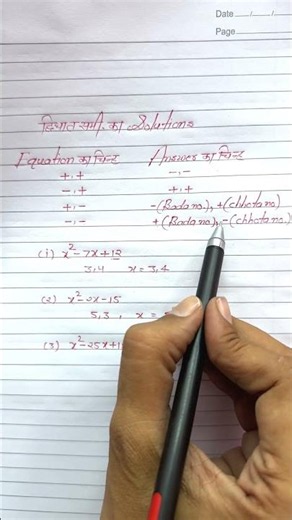 Date ___/___/___
Page
द्विघात समी. का Solutions
Equation का चिन्ह Answer का चिन्ह
+,+ -,-
-,+ +,+
+,- -(Bada no.), +(chhota no.)
-,- +(Bada no.), -(chhota no.)
(i) x²-7x+12
3,4 x=3,4
(2) x²-2x-15
5,3, x =
(3) x²-25x+1